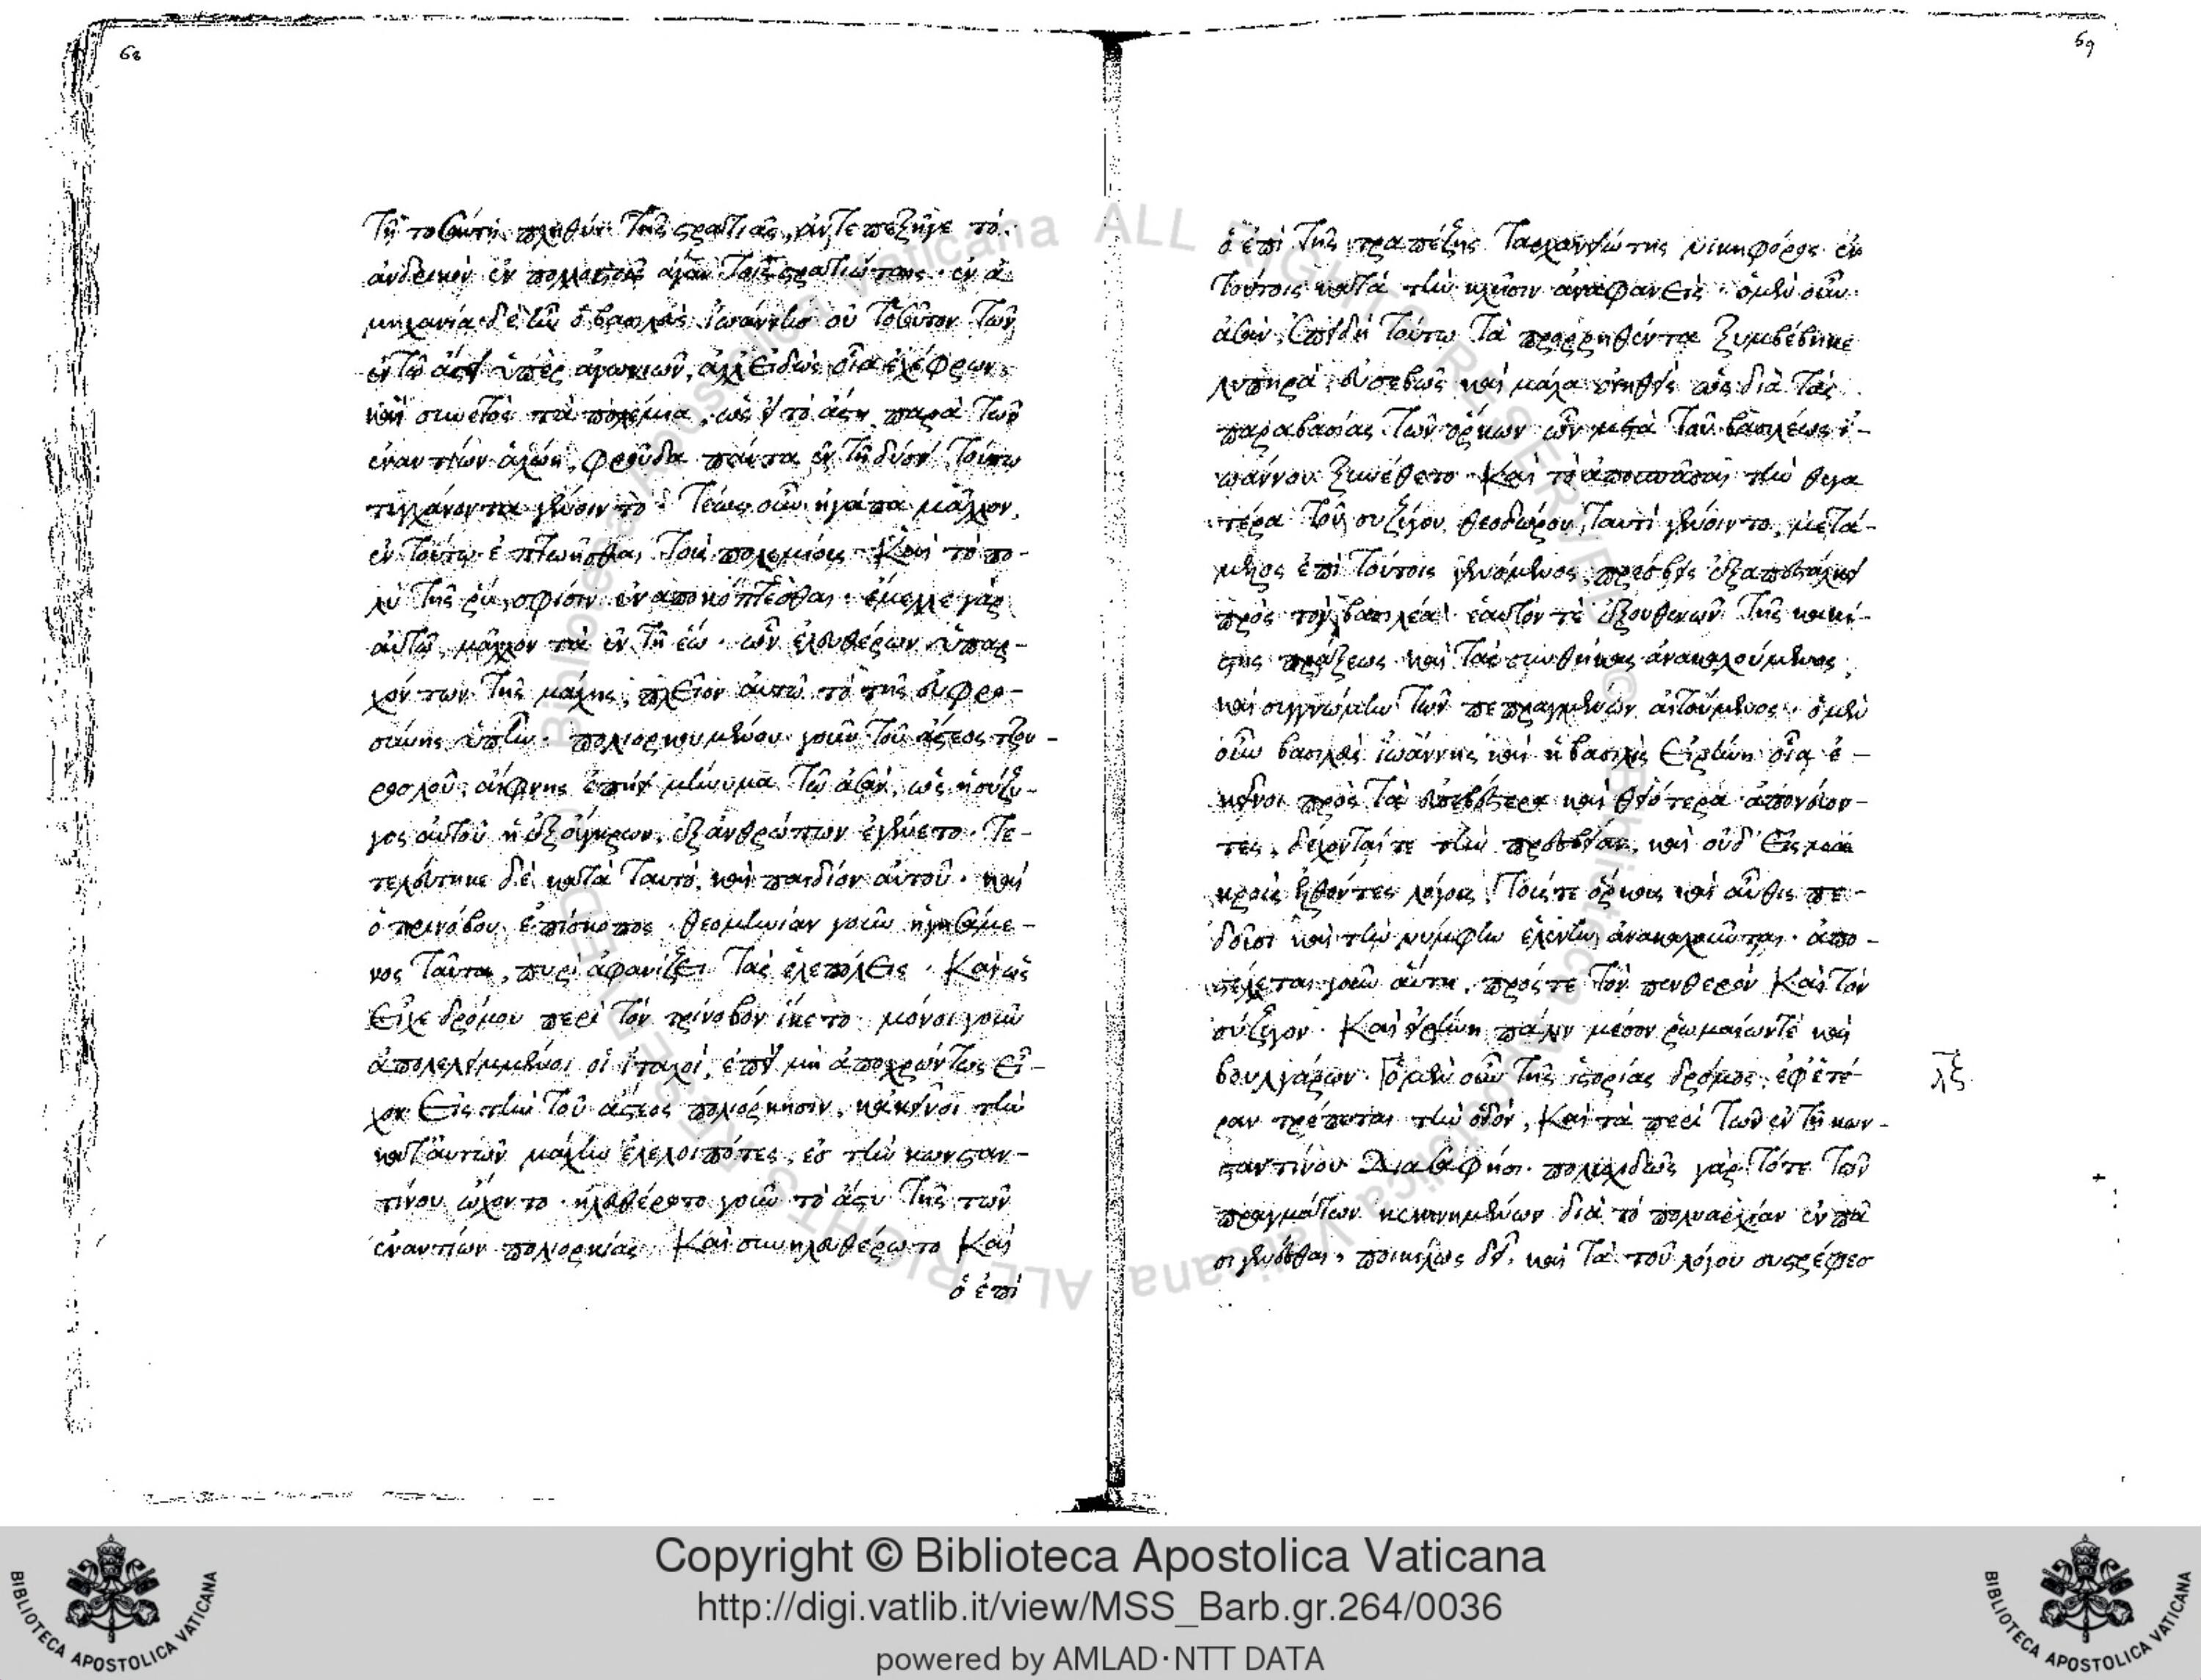 68
τῆ τοσαύτη πληθύι τῆς στρατιᾶς, ἀντεπεξῆγε τὸ
ἀνδρικὸν ἐν πολλοῖς τοῖς στρατιώταις. ἐν ἀ-
μηχανία δὲ ὢν ὁ βασιλεὺς ἰωάννης οὐ τοσοῦτον τῶν
ἐν τῶ ἄστει ὑπεραγωνιῶν, ἀλλ' εἰδὼς οἷα ἐχέφρων
καὶ συνετὸς τὰ πολέμια, ὡς εἰ τὸ ἄστυ παρὰ τῶν
ἐναντίων ἁλώη, φροῦδα πάντα ἐν τῆ δύσει τούτω
τυγχάνοντα γένοιντο. τέως οὖν ἠγάπα μᾶλλον,
ἐν τούτω ἐπτωῆσθαι τοὺς πολεμίους καὶ τὸ πο-
λὺ τῆς σφίσιν ἐναποκόπτεσθαι. ἔμελλε γὰρ
αὐτῶ μᾶλλον τὰ ἐν τῆ ἕω. ὧν ἐλευθέρων ὑπαρ-
χόντων τῆς μάχης, πλεῖον αὐτῶ τὸ τῆς εὐφρο-
σύνης ὑπῆν. πολιορκουμένου γοῦν τοῦ ἄστεος τζου-
ρουλοῦ, αἴφνης ἐπήει μήνυμα τῶ ἀσὰν, ὡς ἡ σύζυ-
γος αὐτοῦ ἡ ἐξ οὔγκρων, ἐξ ἀνθρώπων ἐγένετο. τε-
τελεύτηκε δὲ κατὰ ταυτὸ, καὶ παιδίον αὐτοῦ. καὶ
ὁ τρινόβου ἐπίσκοπος. θεομηνίαν γοῦν ἡγησάμε-
νος ταῦτα, πυρὶ ἀφανίζει τὰς ἑλεπόλεις. καὶ ὡς
εἶχε δρόμου περὶ τὸν τρίνοβον ἵκετο. μόνοι γοῦν
ἀπολελειμμένοι οἱ ἰταλοὶ, ἐπεὶ μὴ ἀποχρώντως εἶ-
χον εἰς τὴν τοῦ ἄστεος πολιόρκησιν, κἀκεῖνοι τὴν
κατ' αὐτῶν μάχην ἐλελοιπότες, ἐς τὴν κωνσταν-
τίνου ὤχοντο. ἠλευθέρωτο γοῦν τὸ ἄστυ τῆς τῶν
ἐναντίων πολιορκίας. καὶ συνηλευθέρωτο καὶ
ὁ ἐπὶ
69
ὁ ἐπὶ τῆς τραπέζης ταρχανειώτης νικηφόρος ἐν
τούτοις κατὰ τὴν κλῆσιν ἀναφανεὶς. ὁ μὲν οὖν
ἀσὰν, ἐπειδὴ τούτω τὰ προρρηθέντα ξυμβέβηκε
λυπηρὰ, εὐσεβῶς καὶ μάλα οἰηθεὶς ὡς διὰ τὰς
παραβασίας τῶν ὅρκων ὧν μετὰ τοῦ βασιλέως ἰ-
ωάννου ξυνέθετο. καὶ τὸ ἀποσπᾶσαι τὴν θυγα
τέρα τοῦ συζύγου θεοδώρου, ταυτὶ γένοιντο, μετά-
μελος ἐπὶ τούτοις γενόμενος, πρέσβεις ἐξαπέστειλε
πρὸς τὸν βασιλέα ἑαυτόν τε ἐξουθενῶν τῆς κακί-
στης πράξεως καὶ τὰς συνθήκας ἀνακαλούμενος,
καὶ συγγνώμην τῶν πεπραγμένων αἰτούμενος. ὁ μὲν
οὖν βασιλεὺς ἰωάννης καὶ ἡ βασιλὶς εἰρήνη οἷα ἐ-
κεῖνοι πρὸς τὰ εὐσεβέστερα καὶ θειότερα ἀπονεύον-
τες, δέχονταί τε τὴν πρεσβείαν, καὶ οὐδ' εἰς μα
κροὺς ἐλθόντες λόγους, τούς τε ὅρκους καὶ αὖθις πε-
δοῦσι καὶ τὴν νύμφην ἑλένην ἀνακαλοῦνται. ἀπο-
στέλλεται γοῦν αὕτη, πρός τε τὸν πενθερὸν καὶ τὸν
σύζυγον. καὶ εἰρήνη πάλιν μέσον ῥωμαίων τε καὶ
βουλγάρων. ὁ μὲν οὖν τῆς ἱστορίας δρόμος, ἐφ' ἑτέ-
λξ
ραν τρέπεται τὴν ὁδόν, καὶ τὰ περὶ τῶν ἐν τῆ κων-
σταντίνου διασαφήσει. πολυειδῶς γὰρ τότε τῶν
πραγμάτων κεκινημένων διὰ τὸ πολυαρχίαν ἐν πᾶ
σι γενέσθαι, ποικίλως δεῖ, καὶ τὰ τοῦ λόγου συστρέφεσ
Copyright © Biblioteca Apostolica Vaticana
http://digi.vatlib.it/view/MSS_Barb.gr.264/0036
powered by AMLAD·NTT DATA
BIBLIOTECA APOSTOLICA VATICANA
BIBLIOTECA APOSTOLICA VATICANA